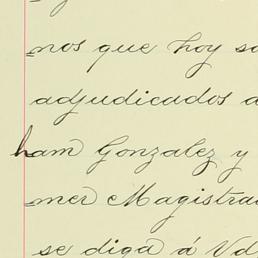 nos que hoy
adjudicados a
ham Gonzalez y
mer Magistra
se diga á Vd